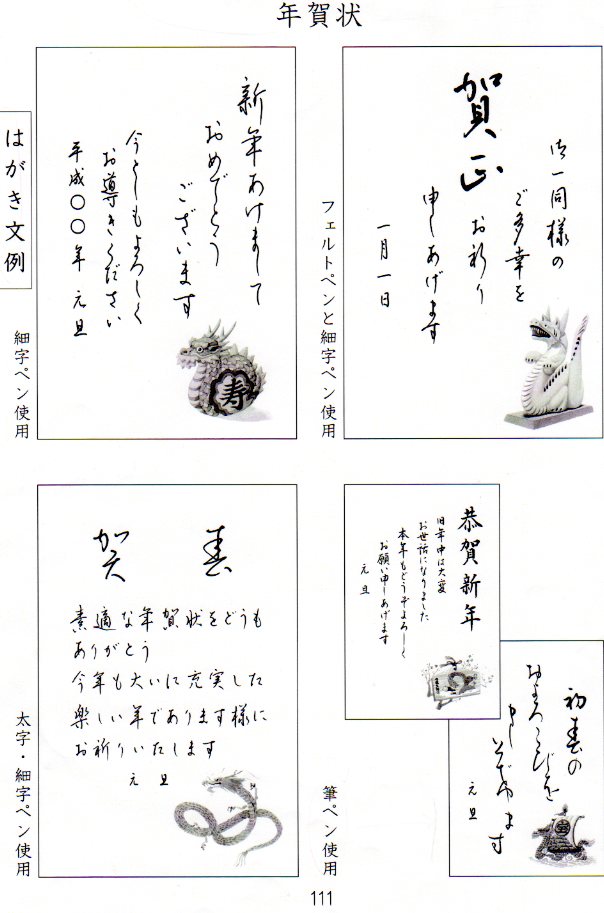 年賀状
はがき文例
賀正
御一同様の
ご多幸を
お祈り
申しあげます
一月一日
フェルトペンと細字ペン使用
新年あけまして
おめでとう
ございます
今としもよろしく
お導きください
平成〇〇年 元旦
寿
細字ペン使用
恭賀新年
旧年中は大変
お世話になりました
本年もどうぞよろしく
お願い申しあげます
元旦
初春の
およろこびを
申し
元旦
筆ペン使用
賀 春
素適な年賀状をどうも
ありがとう
今年も大いに充実した
楽しい年であります様に
お祈りいたします
元旦
太字・細字ペン使用
111